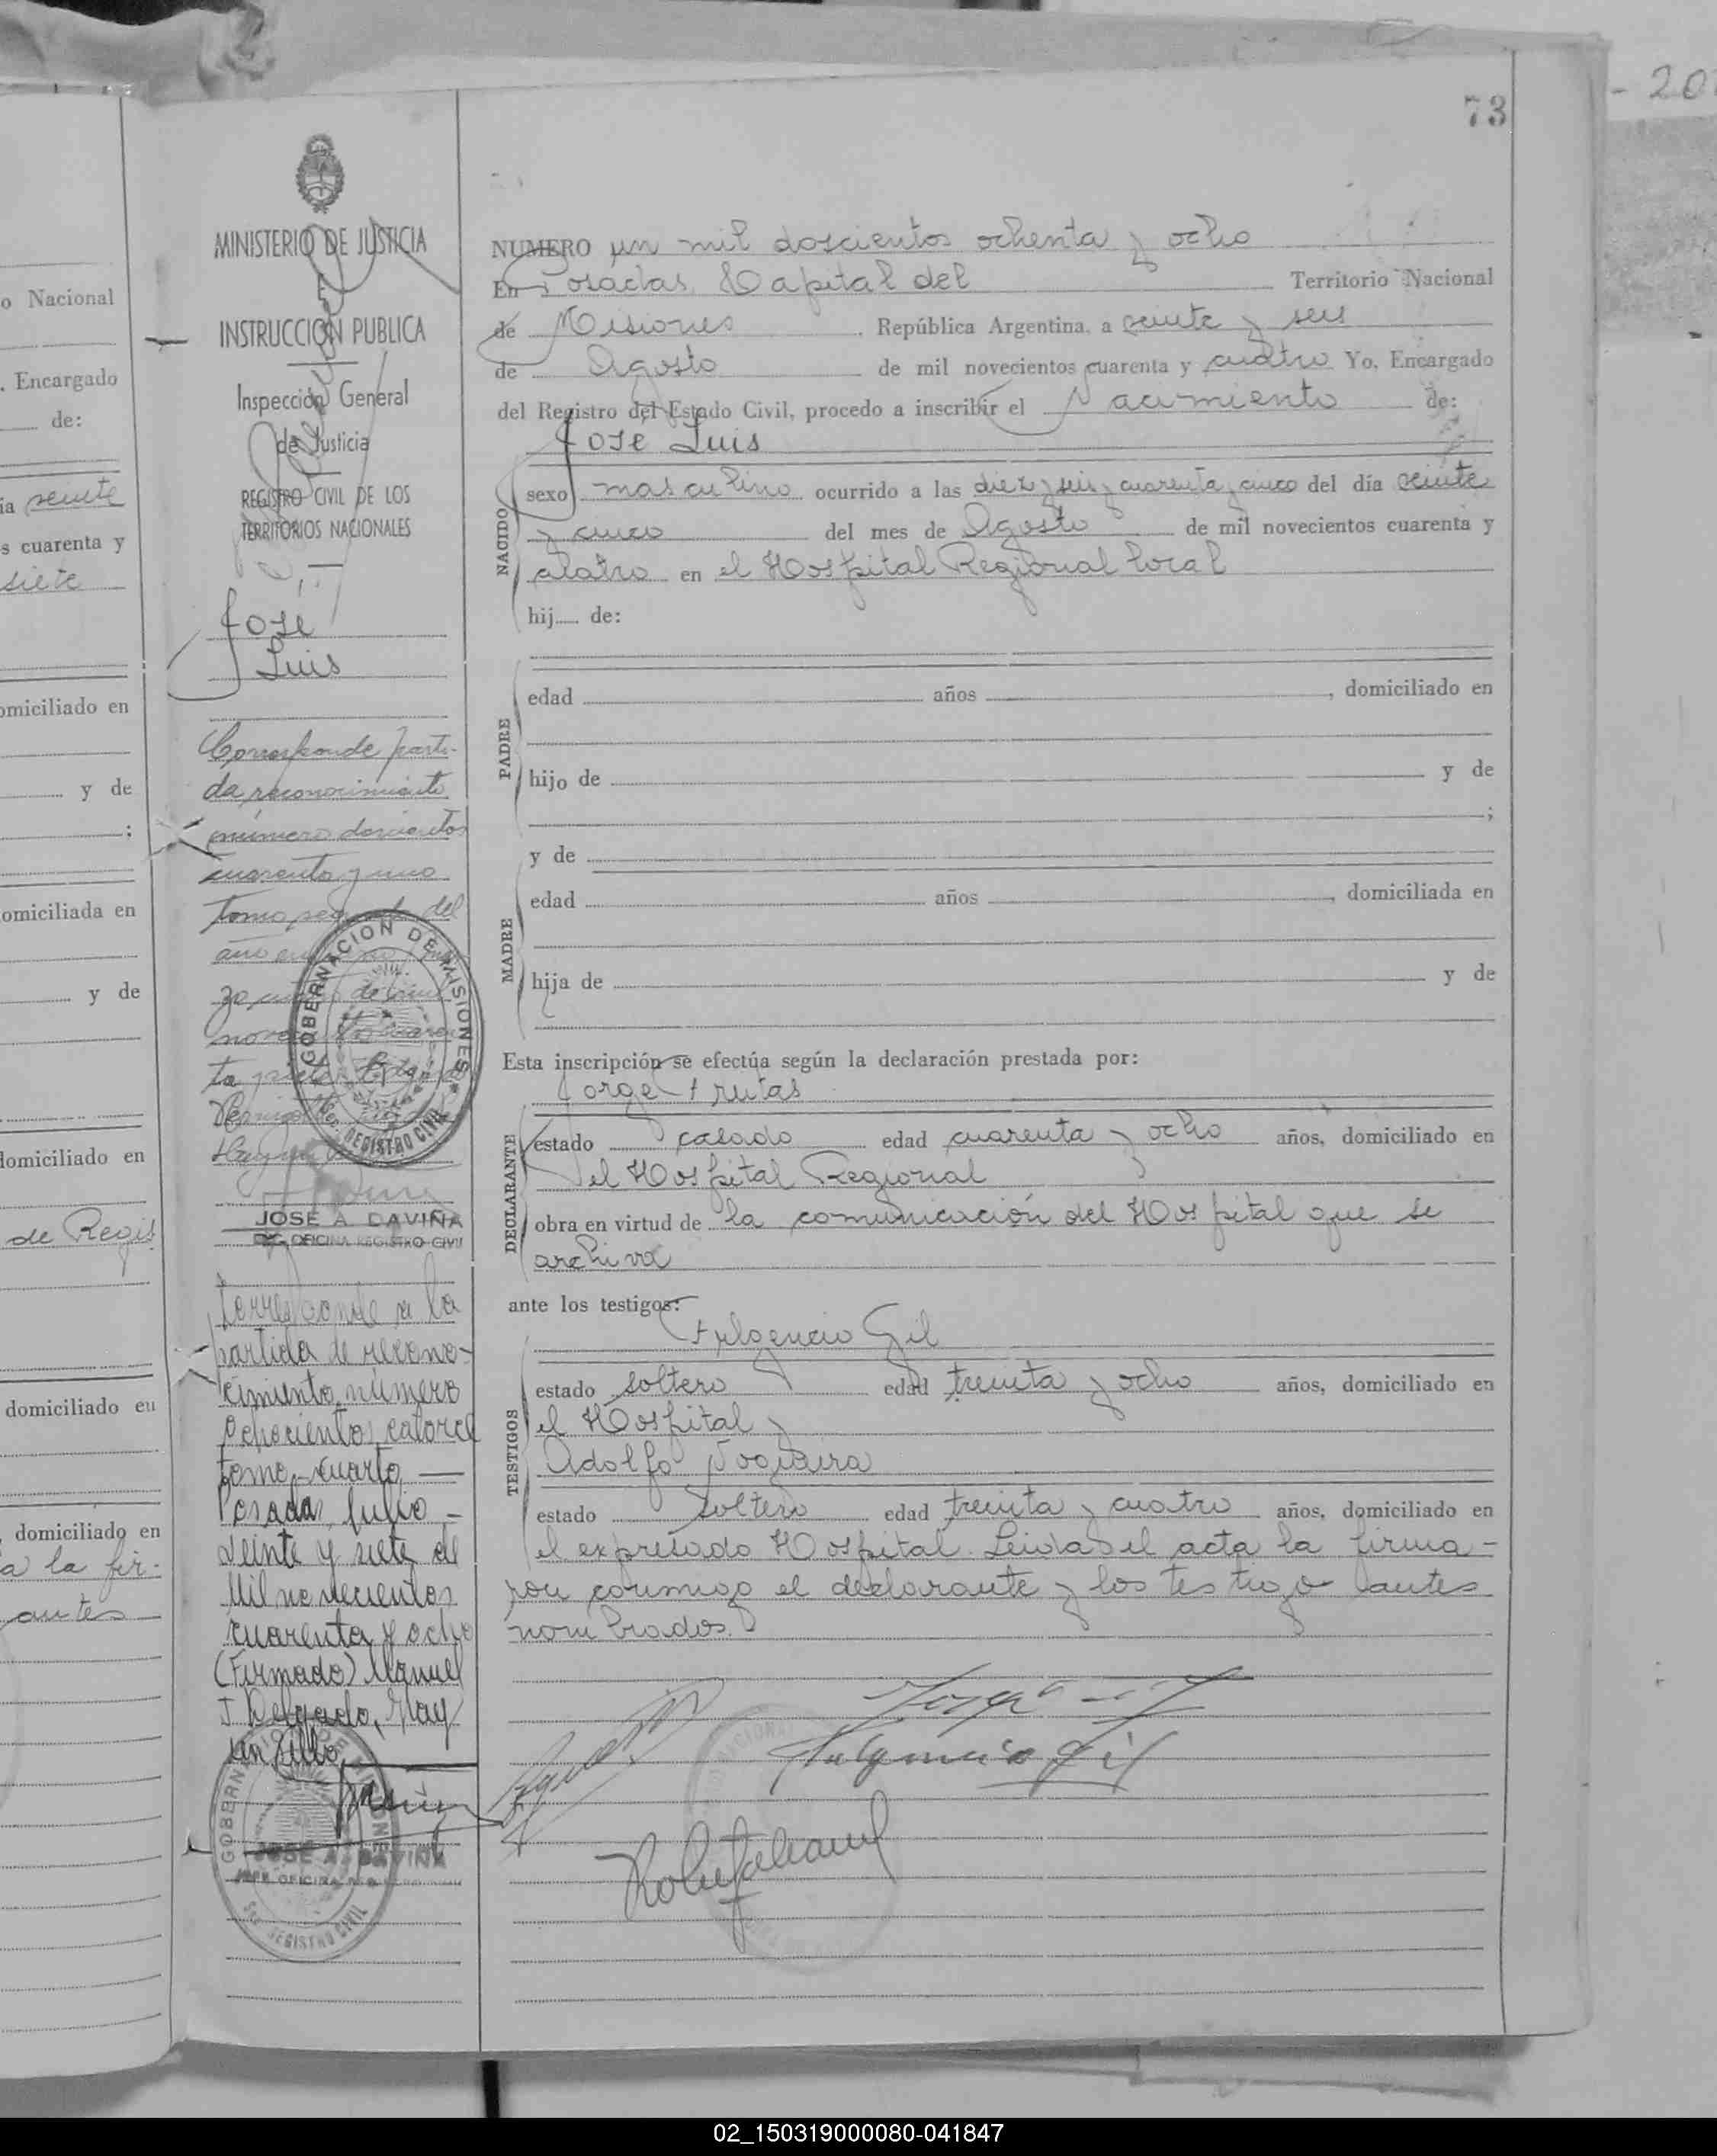 73
- 20
MINISTERIO DE JUSTICIA
INSTRUCCIÓN PUBLICA
Inspección General
de Justicia
REGISTRO CIVIL DE LOS
TERRITORIOS NACIONALES
José
Luis
Corresponde parti-
da reconocimiento
número doscientos
cuarenta y uno
Tomo segundo del
GOBERNACION DE MISIONES
REGISTRO CIVIL
JOSÉ A. DAVIÑA
OFICINA REGISTRO CIVIL
Corresponde a la
partida de recono-
cimiento número
ochocientos catorce
tomo cuarto —
Posadas, Julio —
veinte y siete de
Mil novecientos
cuarenta y ocho
(Firmado) Manuel
J. Delgado, Hay
un sello
JOSE A. DAVIÑA
JEFE OFICINA
REGISTRO CIVIL
NUMERO un mil doscientos ochenta y ocho
En Posadas Capital del Territorio Nacional
de Misiones, República Argentina, a veinte y seis
de Agosto de mil novecientos cuarenta y cuatro Yo, Encargado
del Registro del Estado Civil, procedo a inscribir el Nacimiento de:
José Luis
NACIDO
sexo masculino ocurrido a las diez y seis y cuarenta y cinco del día veinte
y cinco del mes de Agosto de mil novecientos cuarenta y
cuatro en el Hospital Regional local
hij.... de:
PADRE
edad años , domiciliado en
hijo de y de
;
y de
MADRE
edad años , domiciliada en
hija de y de
Esta inscripción se efectúa según la declaración prestada por:
Jorge Frutas
DECLARANTE
estado casado edad cuarenta y ocho años, domiciliado en
el Hospital Regional
obra en virtud de la comunicación del Hospital que se
archiva
ante los testigos:
Fulgencio Gil
TESTIGOS
estado soltero edad treinta y ocho años, domiciliado en
el Hospital y
Adolfo Noguera
estado soltero edad treinta y cuatro años, domiciliado en
el expresado Hospital. Leida el acta la firma-
ron conmigo el declarante y los testigos antes
nombrados.
Fulgencio Gil
o Nacional
. Encargado
de:
ía veinte
s cuarenta y
siete
omiciliado en
y de
;
omiciliada en
y de
domiciliado en
de Regis
domiciliado en
, domiciliado en
a la fir-
antes
02_150319000080-041847